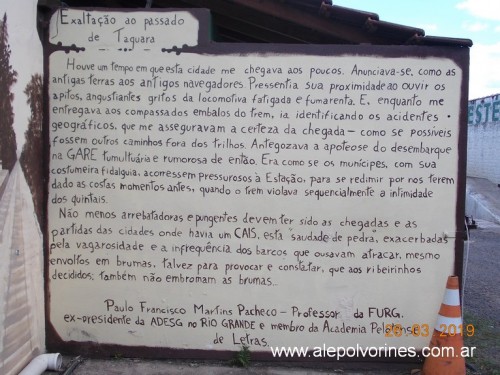 Exaltação ao passado
de Taquara
Houve um tempo em que esta cidade me chegava aos poucos. Anunciava-se, como as
antigas terras aos antigos navegadores. Pressentia sua proximidade ao ouvir os
apitos, angustiantes gritos da locomotiva fatigada e fumarenta. E, enquanto me
entregava aos compassados embalos do trem, ia identificando os acidentes
geográficos, que me asseguravam a certeza da chegada - como se possíveis
fossem outros caminhos fora dos trilhos. Antegozava a apoteose do desembarque
na GARE tumultuária e rumorosa de então. Era como se os munícipes, com sua
costumeira fidalguia, acorressem pressurosos à Estação, para se redimir por nos terem
dado as costas momentos antes, quando o trem violava sequencialmente a intimidade
dos quintais.
Não menos arrebatadoras e pungentes devem ter sido as chegadas e as
partidas das cidades onde havia um CAIS, esta "saudade de pedra", exacerbadas
pela vagarosidade e a infrequência dos barcos que ousavam atracar, mesmo
envoltos em brumas, talvez para provocar e constatar, que aos ribeirinhos
decididos, também não embromam as brumas...
Paulo Francisco Martins Pacheco - Professor da FURG,
ex-presidente da ADESG no RIO GRANDE e membro da Academia Pelotense
de Letras.
26 03 2019
www.alepolvorines.com.ar